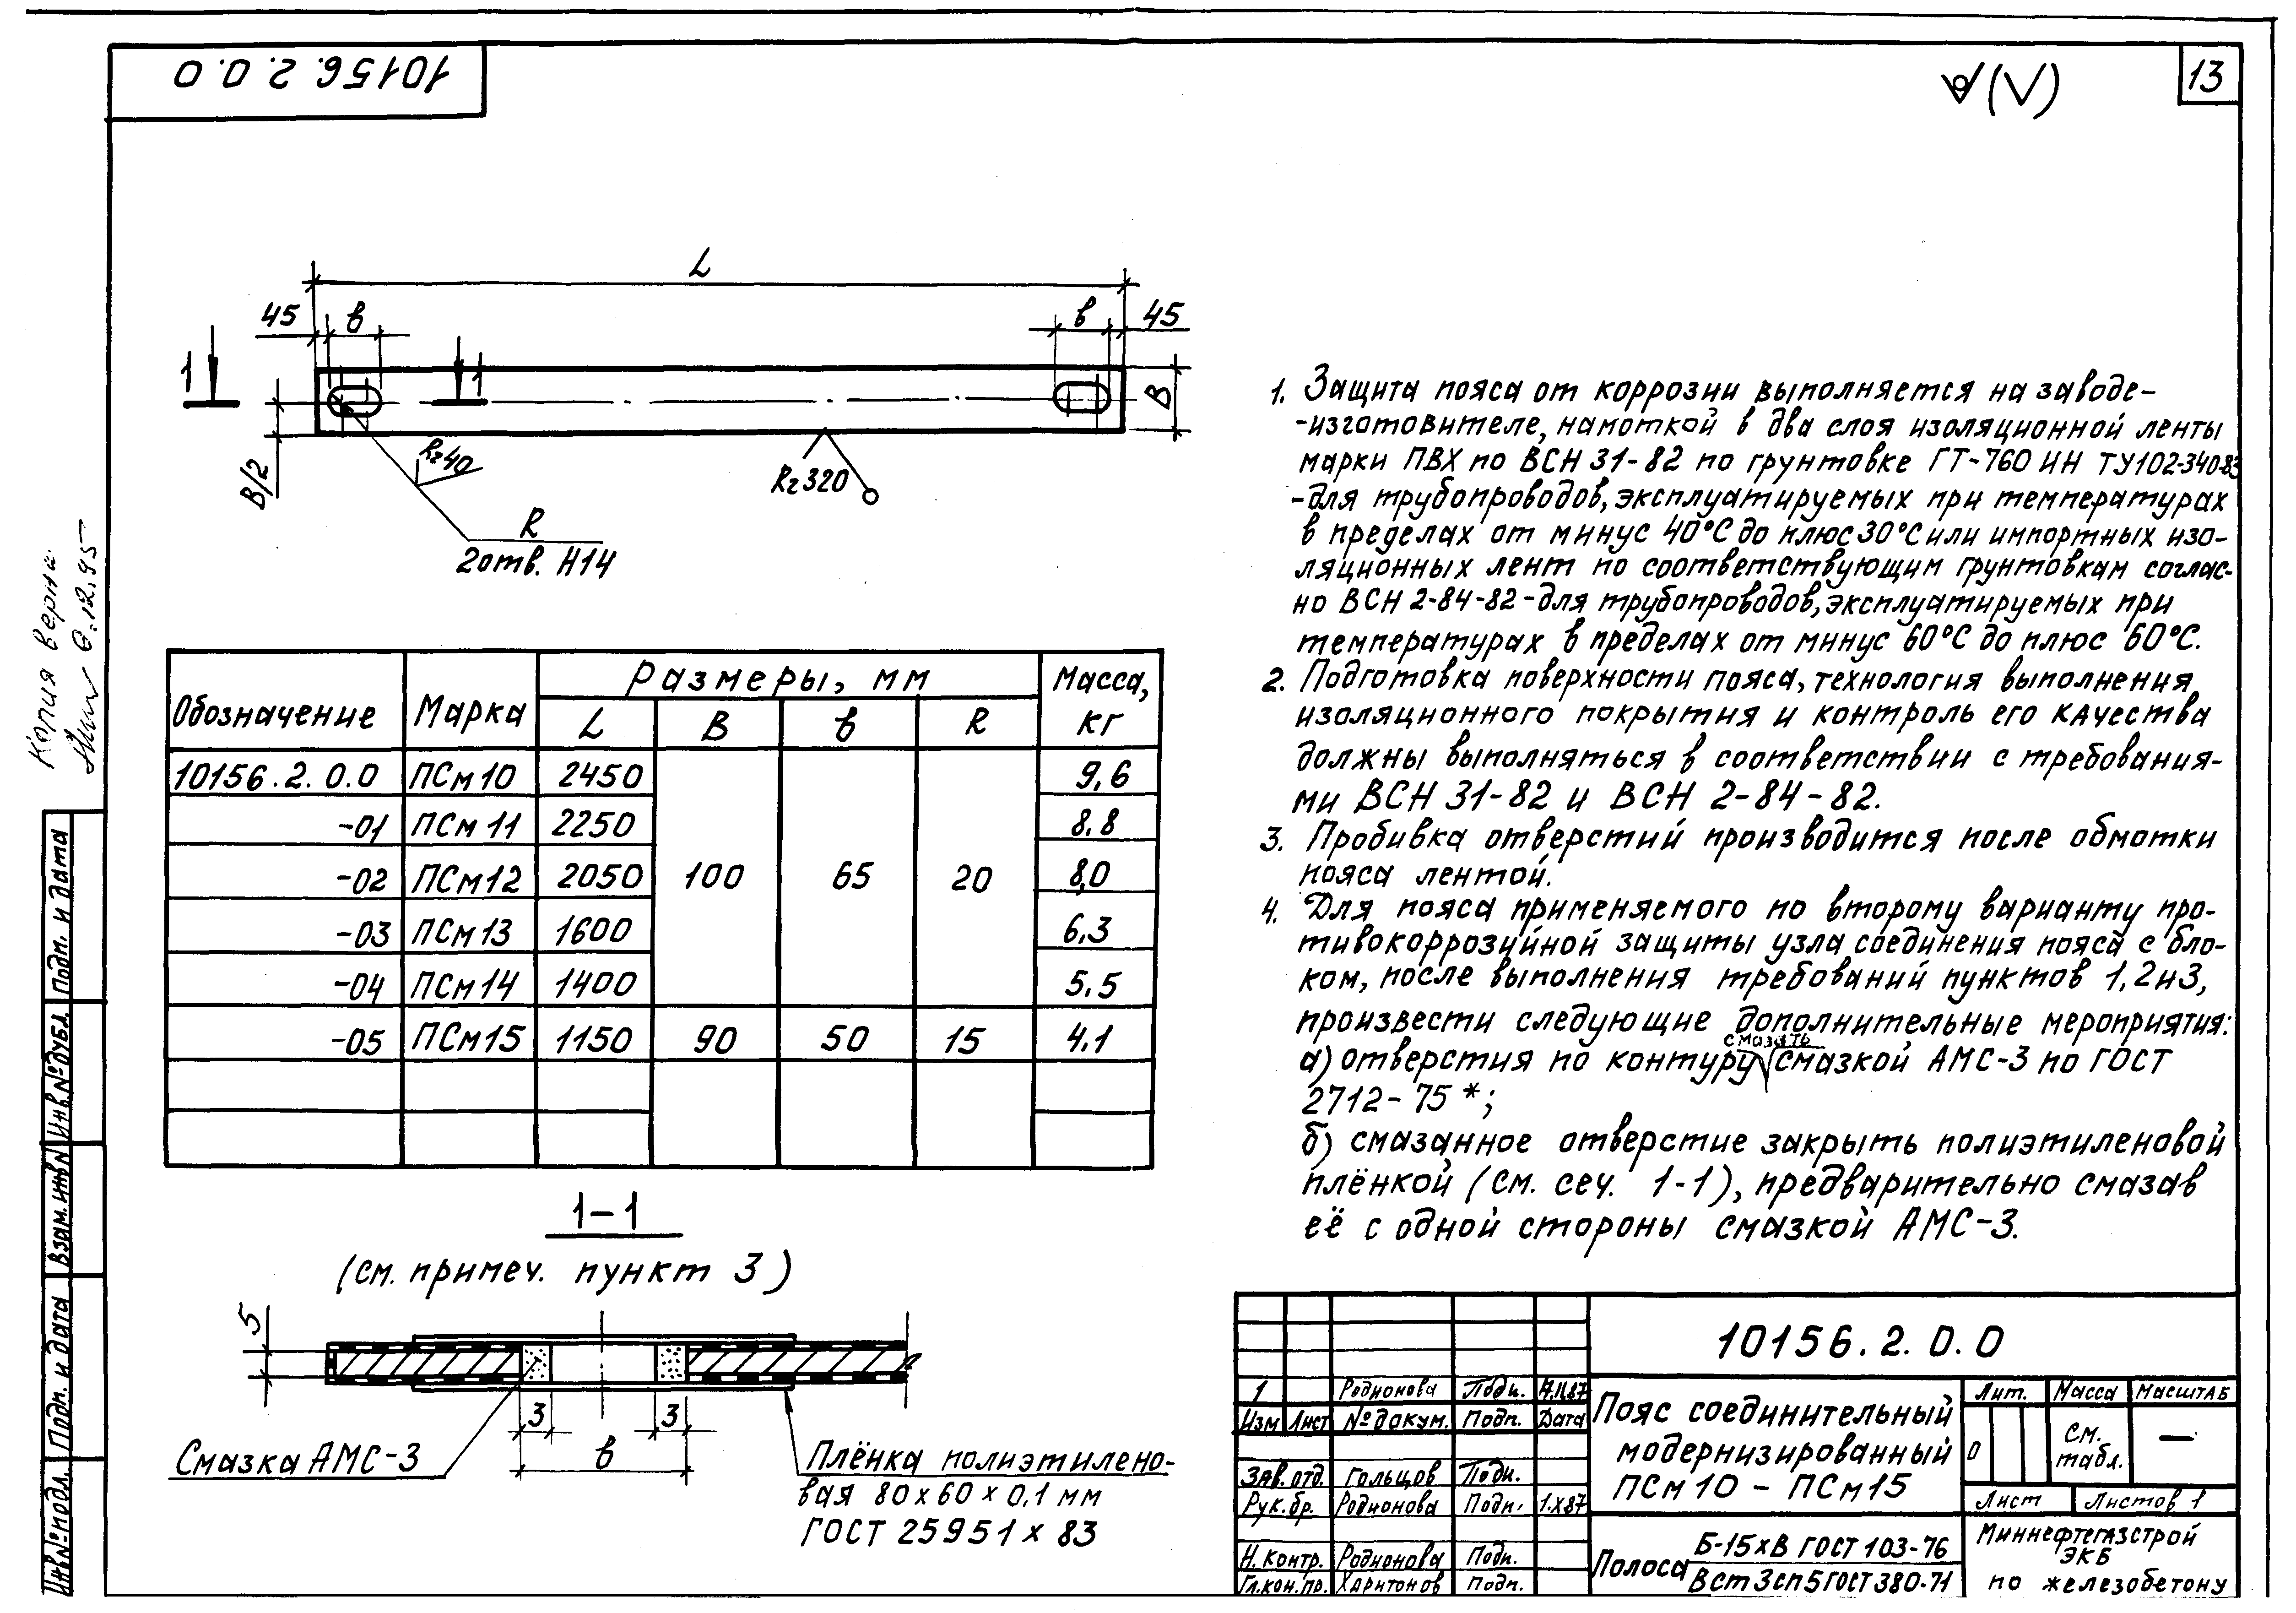 10156.2.0.0
13
L
45
в
в
45
1
1
B
B/2
Rz40
Rz320
R
2отв. H14
Копия верна
Обозначение Марка Размеры, мм Масса, кг
L B в R
10156.2.0.0 ПСм10 2450 9,6
-01 ПСм11 2250 8,8
-02 ПСм12 2050 100 65 20 8,0
-03 ПСм13 1600 6,3
-04 ПСм14 1400 5,5
-05 ПСм15 1150 90 50 15 4,1
1-1
(см. примеч. пункт 3)
5
3
3
в
Смазка АМС-3
Плёнка полиэтилено-
вая 80х60х0,1 мм
ГОСТ 25951х83
1. Защита пояса от коррозии выполняется на заводе-
-изготовителе, намоткой в два слоя изоляционной ленты
марки ПВХ по ВСН 31-82 по грунтовке ГТ-760 ИН ТУ102-340-83
-для трубопроводов, эксплуатируемых при температурах
в пределах от минус 40°С до плюс 30°С или импортных изо-
ляционных лент по соответствующим грунтовкам соглас-
но ВСН 2-84-82-для трубопроводов, эксплуатируемых при
температурах в пределах от минус 60°С до плюс 60°С.
2. Подготовка поверхности пояса, технология выполнения
изоляционного покрытия и контроль его качества
должны выполняться в соответствии с требования-
ми ВСН 31-82 и ВСН 2-84-82.
3. Пробивка отверстий производится после обмотки
пояса лентой.
4. Для пояса применяемого по второму варианту про-
тивокоррозийной защиты узла соединения пояса с бло-
ком, после выполнения требований пунктов 1,2и3,
произвести следующие дополнительные мероприятия:
а) отверстия по контуру смазать смазкой АМС-3 по ГОСТ
2712-75*;
б) смазанное отверстие закрыть полиэтиленовой
плёнкой (см. сеч. 1-1), предварительно смазав
её с одной стороны смазкой АМС-3.
10156.2.0.0
1 Родионова Подп.
Изм Лист № докум. Подп. Дата
Зав. отд. Гольцов Подп.
Рук. бр. Родионова Подп. 1.X87
Н. контр. Родионова Подп.
Гл.кон.пр. Харитонов Подп.
Пояс соединительный
модернизированный
ПСм10 - ПСм15
Лит. Масса Масштаб
0 См. табл. —
Лист Листов 1
Полоса Б-15хВ ГОСТ 103-76
ВСт3сп5 ГОСТ 380-71
Миннефтегазстрой
ЭКБ
по железобетону
Подп. и дата
Инв.№ дубл.
Взам. инв.№
Подп. и дата
Инв.№ подл.